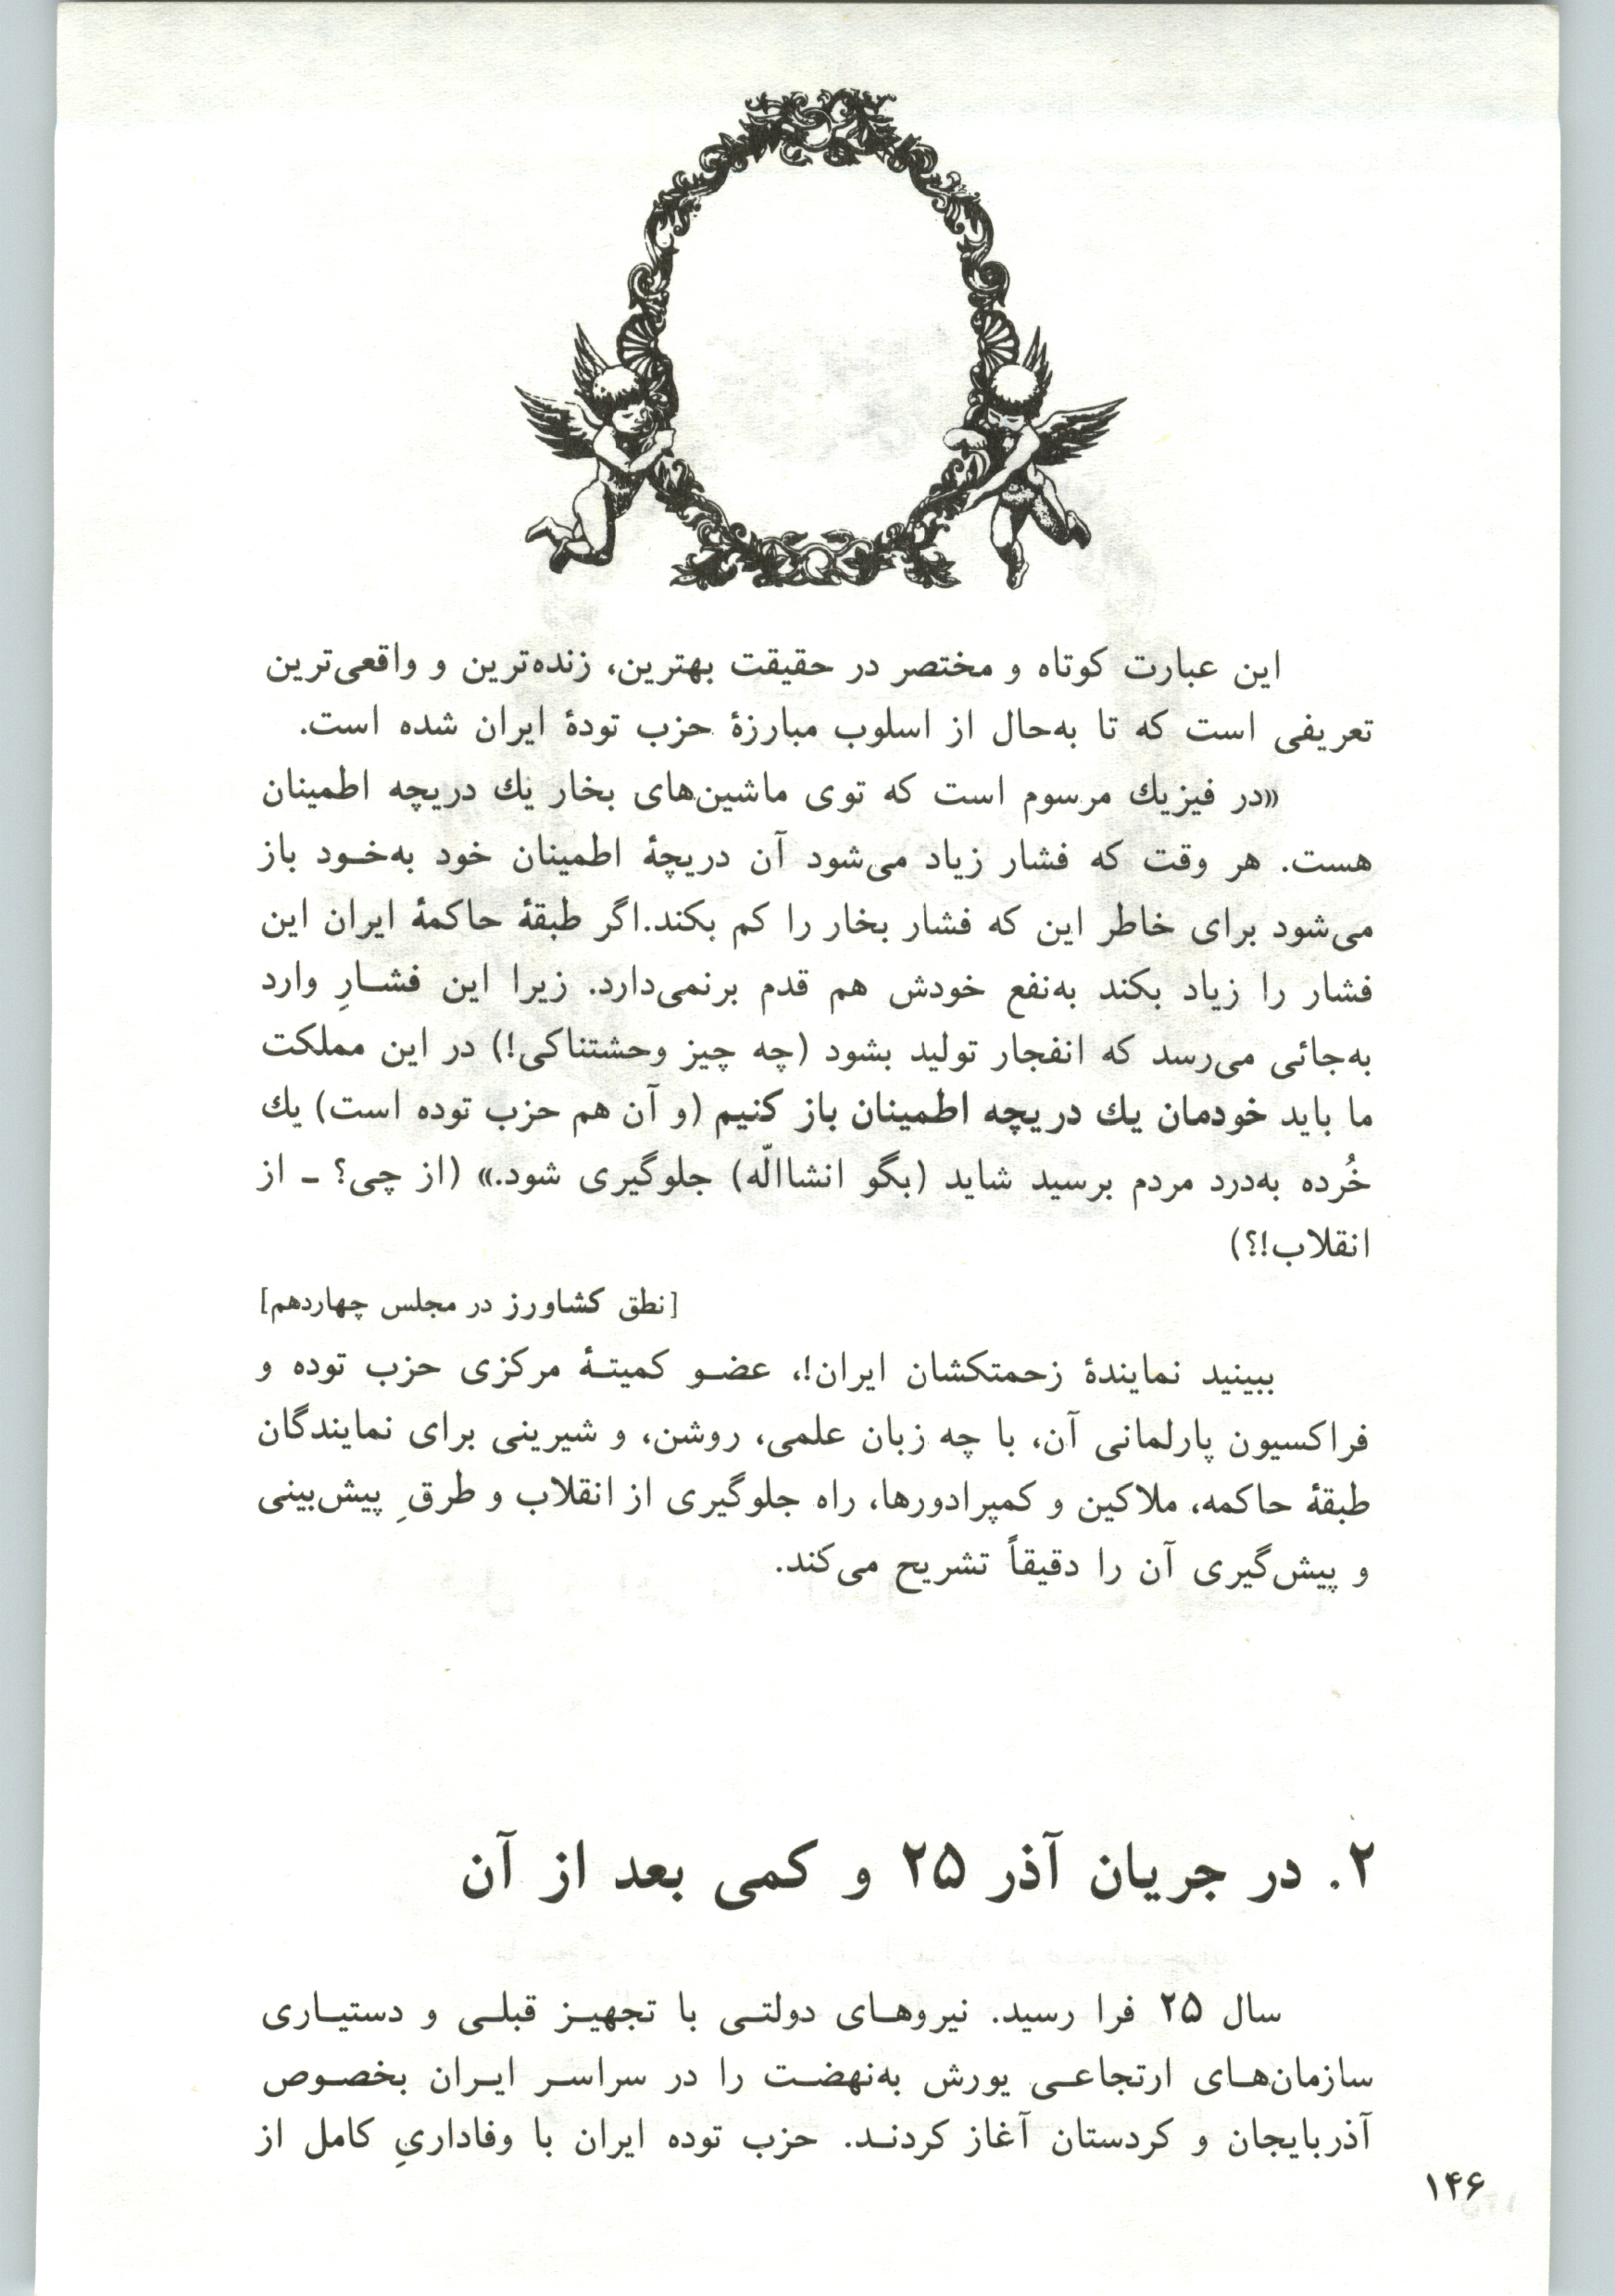 این عبارت کوتاه و مختصر در حقیقت بهترین، زنده‌ترین و واقعی‌ترین
تعریفی است که تا به‌حال از اسلوب مبارزهٔ حزب تودهٔ ایران شده است.
«در فیزیك مرسوم است که توی ماشین‌های بخار یك دریچه اطمینان
هست. هر وقت که فشار زیاد می‌شود آن دریچهٔ اطمینان خود به‌خـود باز
می‌شود برای خاطر این که فشار بخار را کم بکند.اگر طبقهٔ حاکمهٔ ایران این
فشار را زیاد بکند به‌نفع خودش هم قدم برنمی‌دارد. زیرا این فشـارِ وارد
به‌جائی می‌رسد که انفجار تولید بشود (چه چیز وحشتناکی!) در این مملکت
ما باید خودمان یك دریچه اطمینان باز کنیم (و آن هم حزب توده است) یك
خُرده به‌درد مردم برسید شاید (بگو انشااللّه) جلوگیری شود.» (از چی؟ ـ از
انقلاب!؟)
[نطق کشاورز در مجلس چهاردهم]
ببینید نمایندهٔ زحمتکشان ایران!، عضـو کمیتـهٔ مرکزی حزب توده و
فراکسیون پارلمانی آن، با چه زبان علمی، روشن، و شیرینی برای نمایندگان
طبقهٔ حاکمه، ملاکین و کمپرادورها، راه جلوگیری از انقلاب و طرقِ پیش‌بینی
و پیش‌گیری آن را دقیقاً تشریح می‌کند.
۲. در جریان آذر ۲۵ و کمی بعد از آن
سال ۲۵ فرا رسید. نیروهـای دولتـی با تجهیـز قبلـی و دستیـاری
سازمان‌هـای ارتجاعـی یورش به‌نهضـت را در سراسـر ایـران بخصـوص
آذربایجان و کردستان آغاز کردنـد. حزب توده ایران با وفاداریِ کامل از
۱۴۶